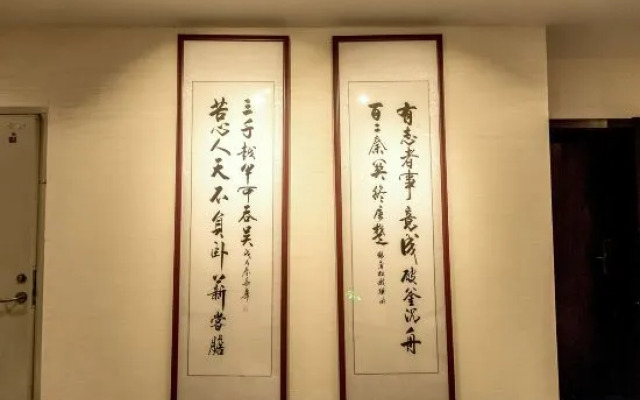 有志者事竟成破釜沉舟
百二秦關終屬楚
苦心人天不負卧薪嘗膽
三千越甲可吞吴